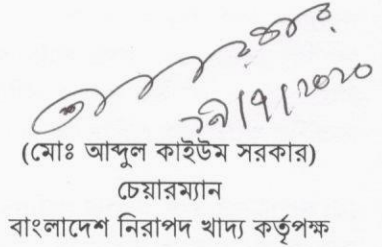 (মোঃ আব্দুল কাইউম সরকার)
চেয়ারম্যান
বাংলাদেশ নিরাপদ খাদ্য কর্তৃপক্ষ